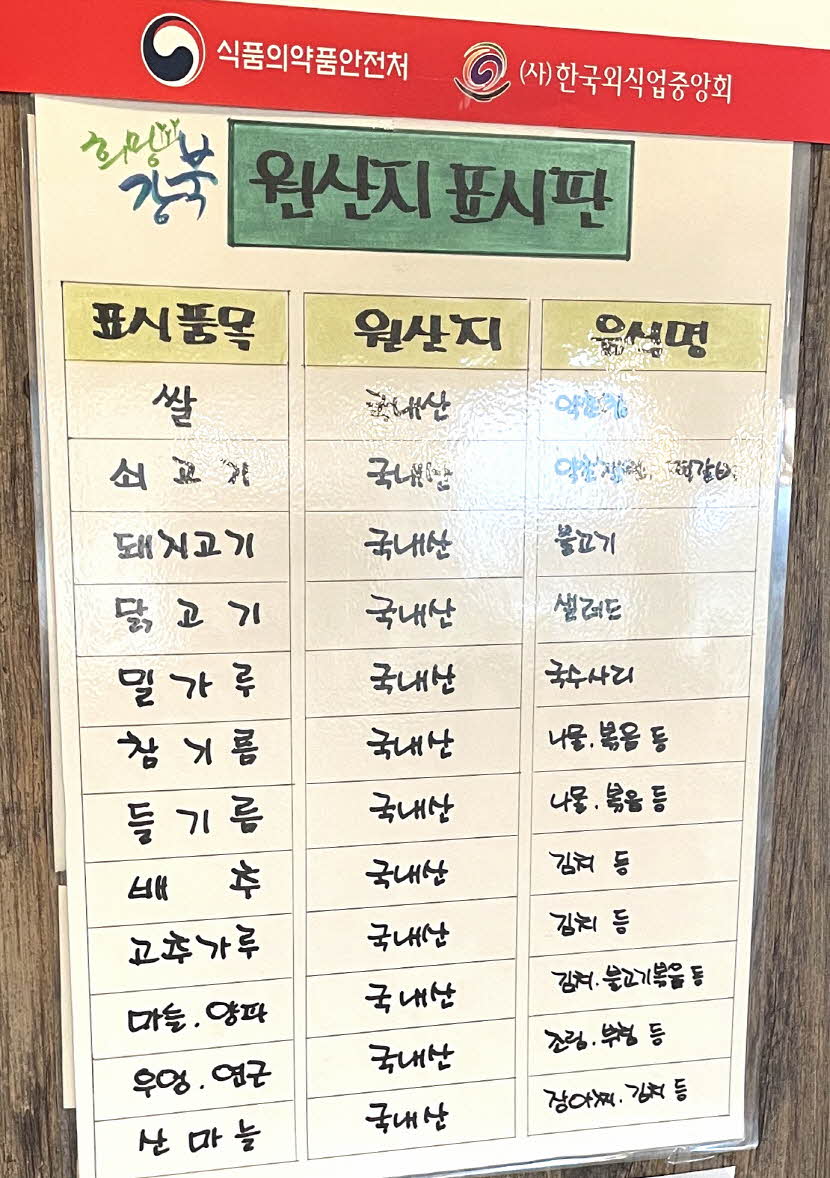 식품의약품안전처 (사)한국외식업중앙회
희망 강북
원산지 표시판
표시품목 원산지 음식명
쌀 국내산
쇠고기 국내산 떡갈비
돼지고기 국내산 불고기
닭고기 국내산 샐러드
밀가루 국내산 국수사리
참기름 국내산 나물.볶음 등
들기름 국내산 나물.볶음 등
배추 국내산 김치 등
고추가루 국내산 김치 등
마늘.양파 국내산 김치.불고기볶음 등
우엉.연근 국내산 조림.부침 등
산마늘 국내산 장아찌.김치 등